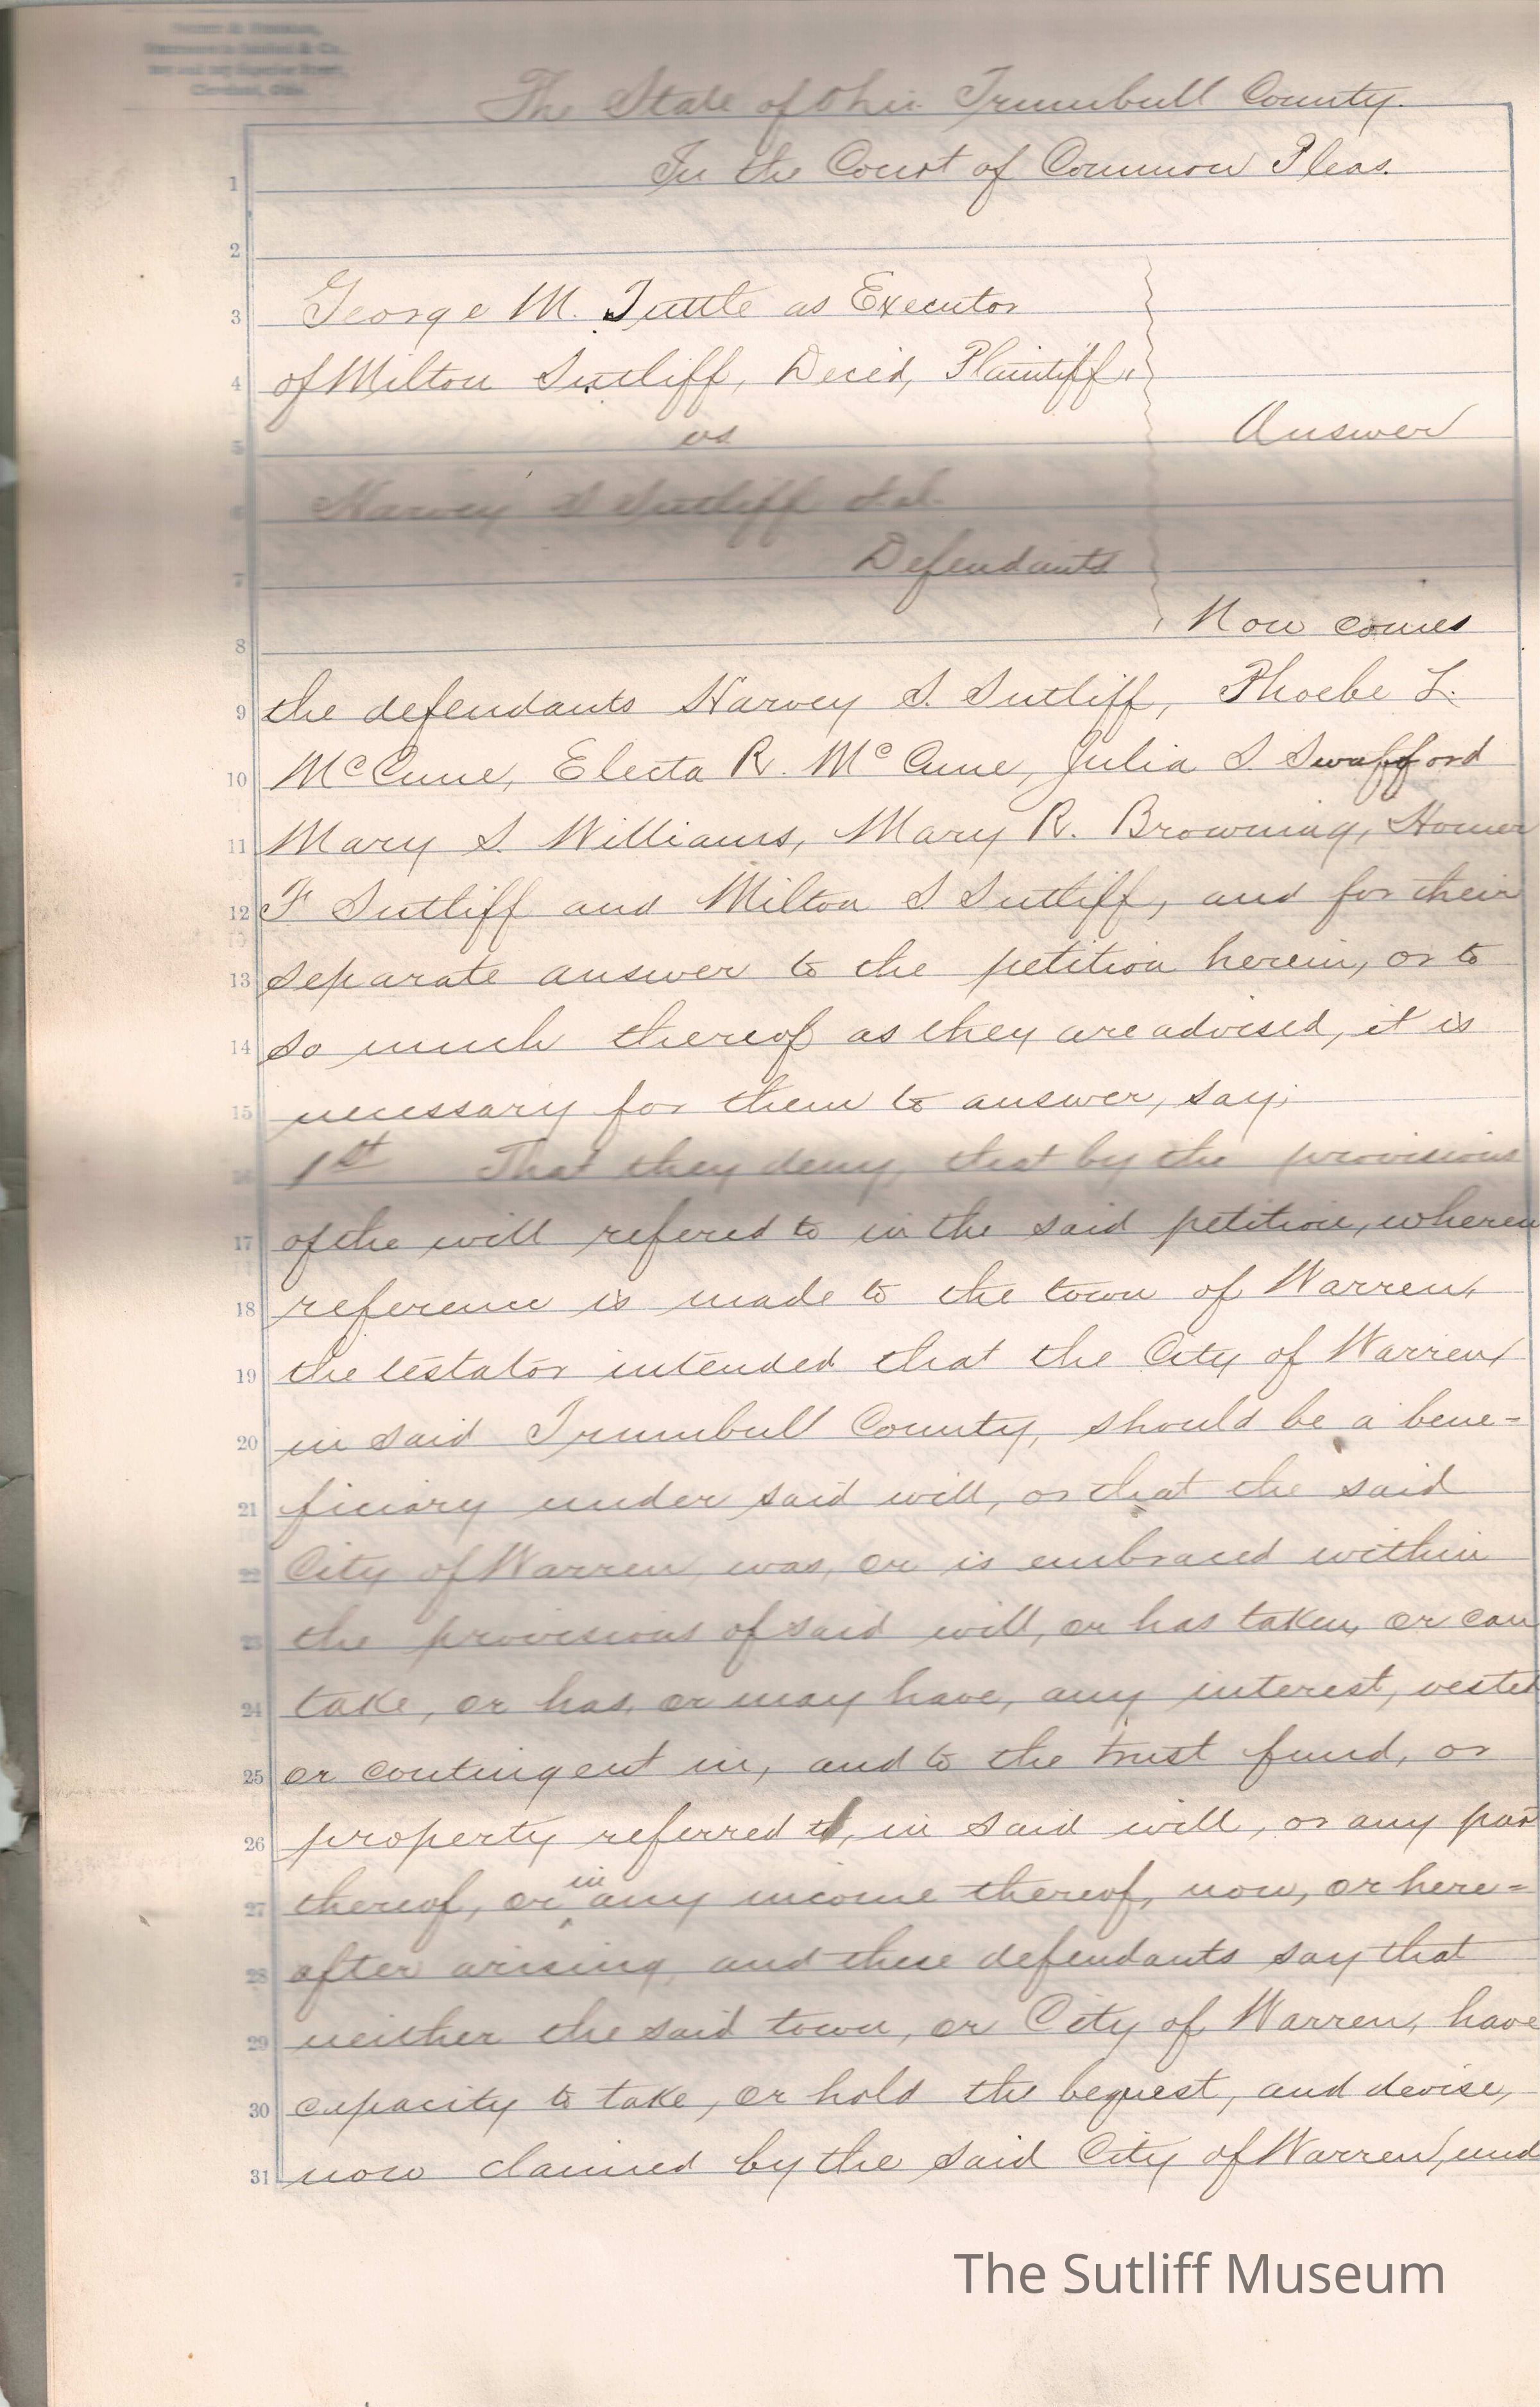 Cleveland, Ohio.
The State of Ohio Trumbull County.
In the Court of Common Pleas.
1
2
3 George M. Tuttle as Executor
4 of Milton Sutliff, Deced, Plaintiff,
5 vs Answer
6 Harvey S Sutliff et al.
7 Defendants
8 Now comes
9 the defendants Harvey S. Sutliff, Phoebe L.
10 McCune, Electa R. McCune, Julia S. Swafford
11 Mary S. Williams, Mary R. Browning, Homer
12 F Sutliff and Milton S Sutliff, and for their
13 separate answer to the petition herein, or to
14 so much thereof as they are advised, it is
15 necessary for them to answer, say;
16 1st That they deny, that by the provisions
17 of the will refered to in the said petition, wherein
18 reference is made to the town of Warren,
19 the testator intended that the City of Warren,
20 in said Trumbull County, should be a bene=
21 ficiary under said will, or that the said
22 City of Warren, was, or is embraced within
23 the provisions of said will, or has taken, or can
24 take, or has, or may have, any interest, vested
25 or contingent in, and to the trust fund, or
26 property referred to, in said will, or any par
27 thereof, or in any income thereof, now, or here=
28 after arising, and these defendants say that
29 neither the said town, or City of Warren, have
30 capacity to take, or hold the bequest, and devise,
31 now claimed by the said City of Warren, und
The Sutliff Museum